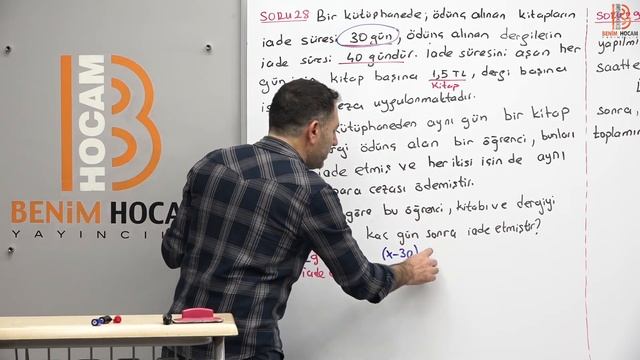 HOCAM
B
BENİM HOCAM
YAYINCI
SORU 28 Bir kütüphanede; ödünç alınan kitapların
iade süresi 30 gün, ödünç alınan dergilerin
iade süresi 40 gündür. İade süresini aşan her
gün için kitap başına 1,5 TL, dergi başına
Kitap
ceza uygulanmaktadır.
kütüphaneden aynı gün bir kitap
dergi ödünç alan bir öğrenci, bunları
iade etmiş ve her ikisi için de aynı
para cezası ödemiştir.
göre bu öğrenci, kitabı ve dergiyi
kaç gün sonra iade etmiştir?
(x-30)
iade
SORU 29
yapılmı
saatte
sonra,
toplamın